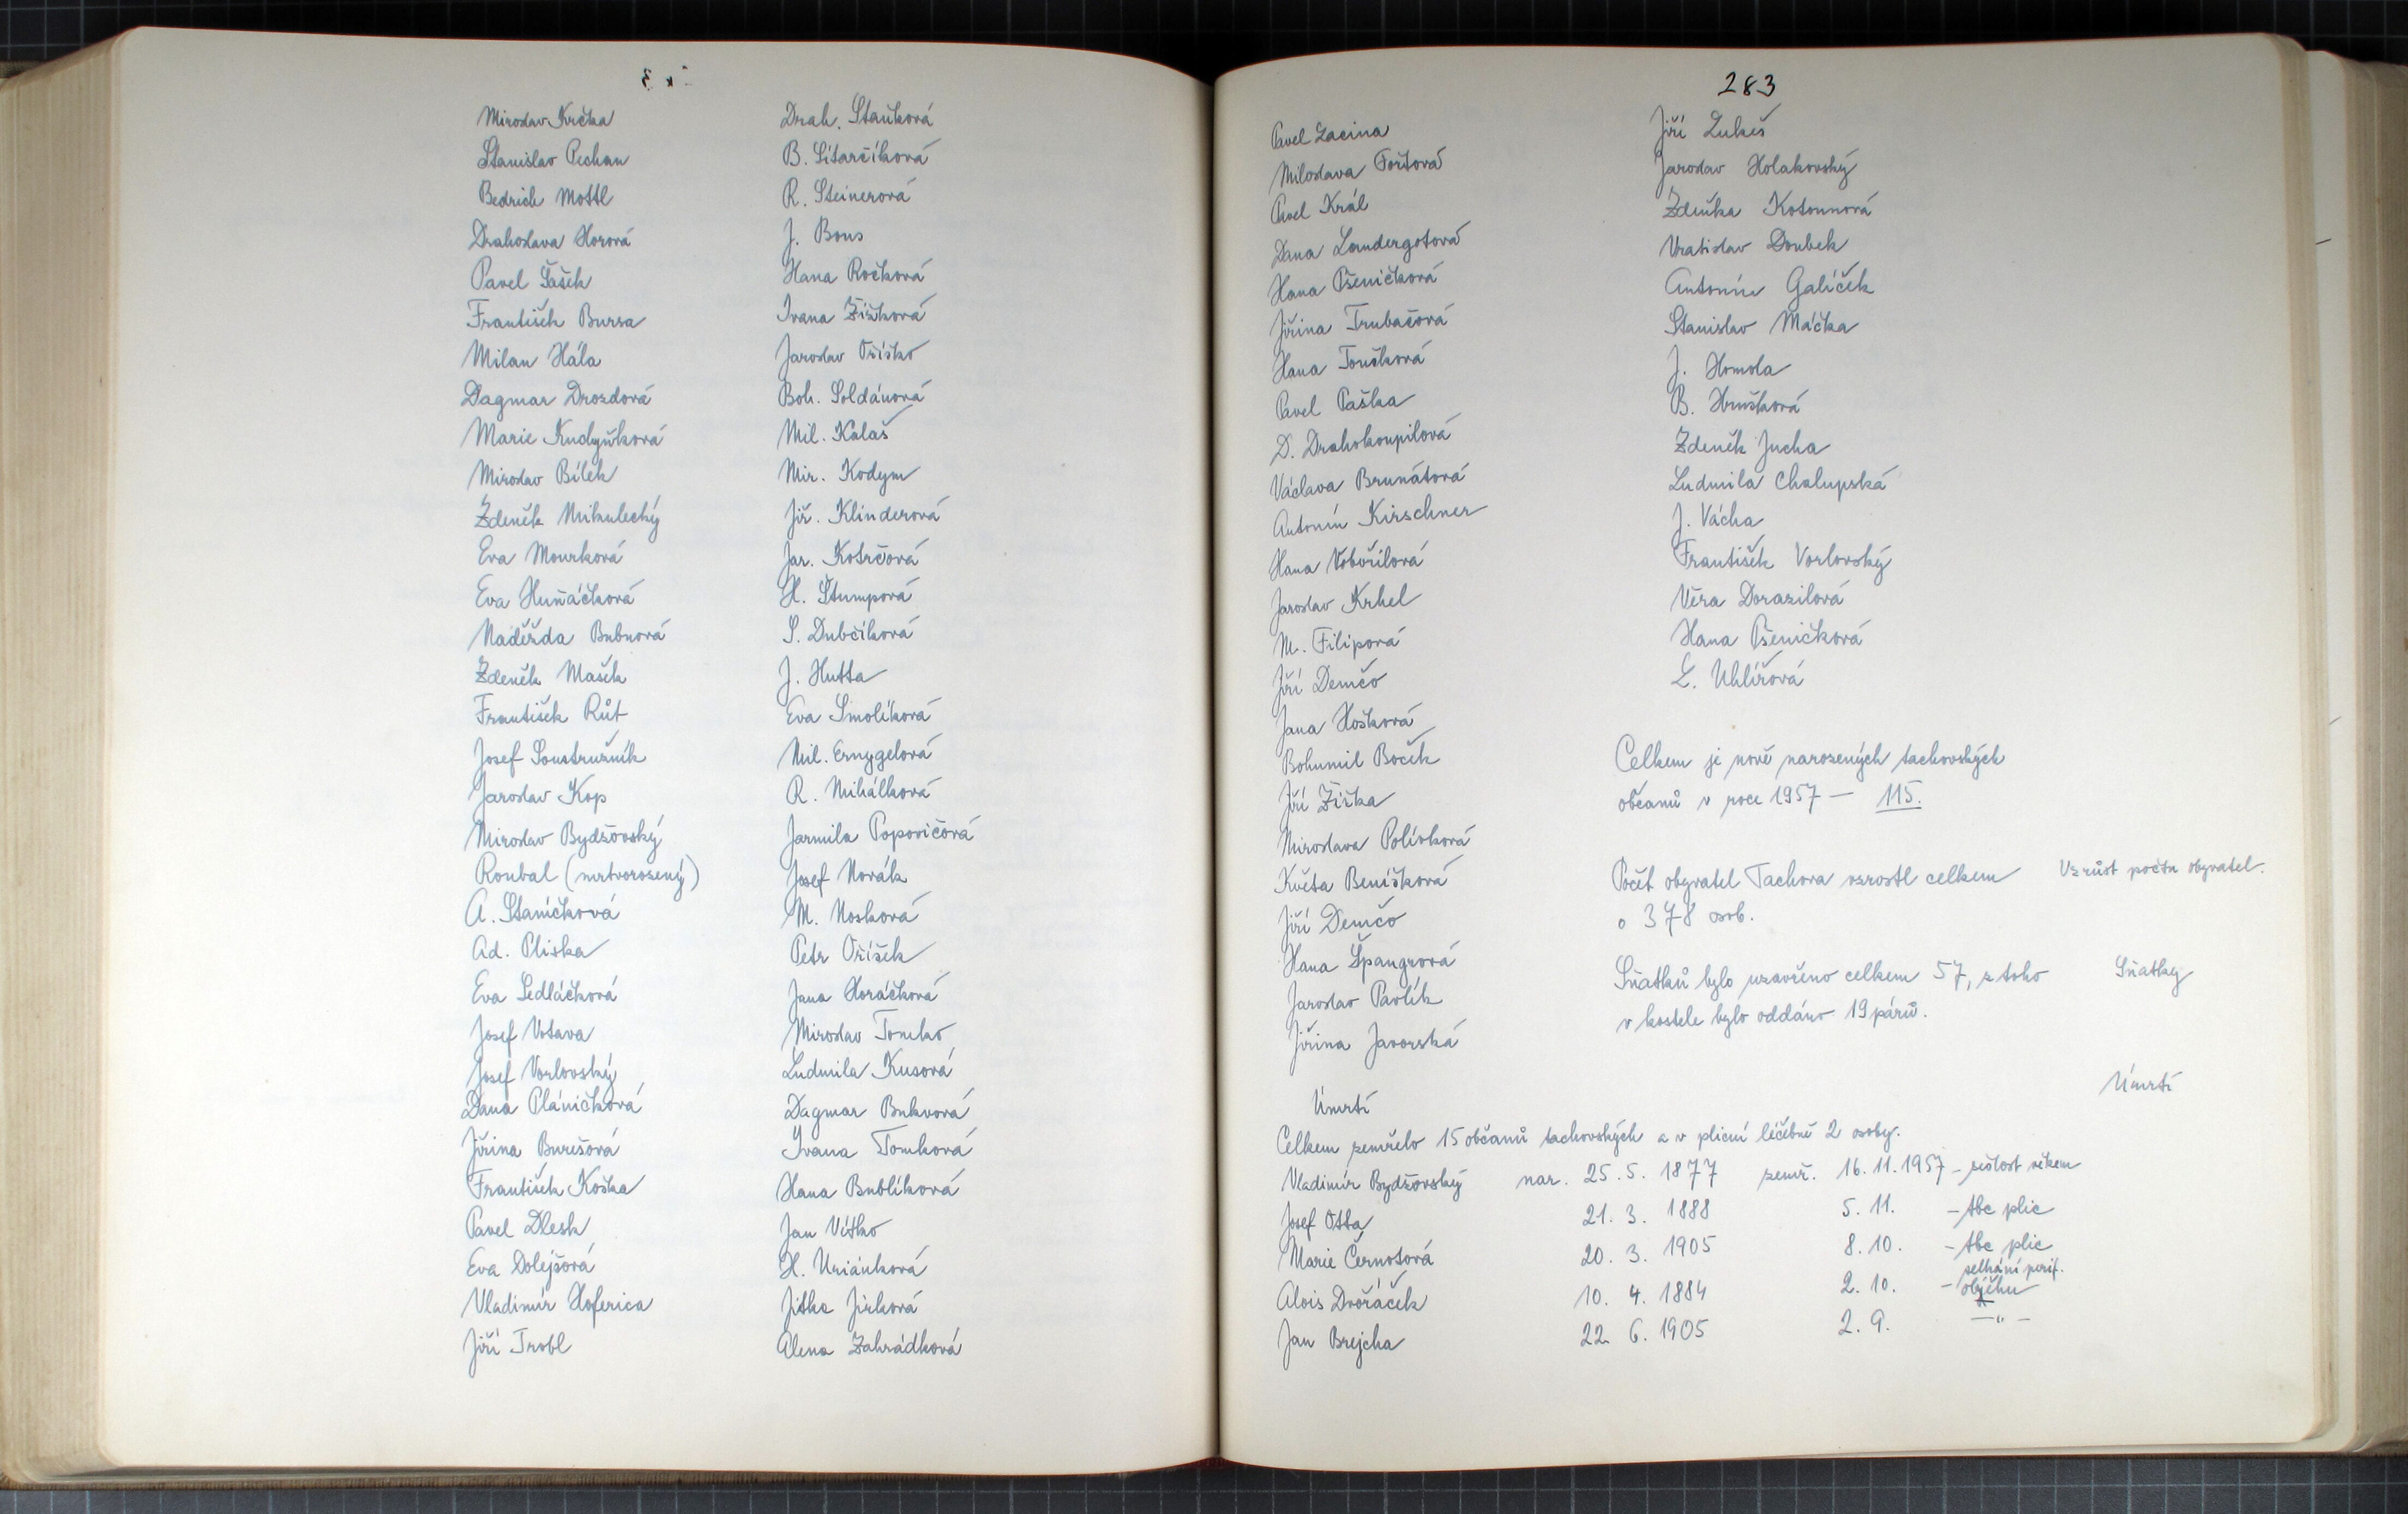 Miroslav Krčka
Stanislav Pechan
Bedrich Mottl
Drahoslava Horová
Pavel Šašek
František Bursa
Milan Hála
Dagmar Drozdová
Marie Kudyňková
Miroslav Bílek
Zdeněk Mikulecký
Eva Mourková
Eva Huňáčková
Naděžda Bubnová
Zdeněk Mašek
František Růt
Josef Soustružník
Jaroslav Kop
Miroslav Bydžovský
Roubal (mrtvorozený)
A. Staníčková
Ad. Pliska
Eva Sedláčková
Josef Votava
Josef Vorlovský
Dana Pláničková
Jiřina Burešová
František Koška
Pavel Dlesk
Eva Dolejšová
Vladimír Hoferica
Jiří Trobl
Drah. Staňková
B. Sitarčíková
R. Steinerová
J. Bous
Hana Ročková
Ivana Žižková
Jaroslav Oříško
Boh. Soldánová
Mil. Kalaš
Mir. Kodym
Jiř. Klinderová
Jar. Kotrčová
H. Štumpová
S. Dubčíková
J. Hutta
Eva Smolíková
Mil. Ernygelová
R. Mihálková
Jarmila Popovičová
Josef Novák
M. Nosková
Petr Oříšek
Jana Horáčková
Miroslav Tomko
Ludmila Kusová
Dagmar Bukvová
Ivana Tomková
Hana Bublíková
Jan Vítko
H. Uriánková
Jitka Jirková
Alena Zahrádková
283
Pavel Lacina
Miloslava Fořtová
Pavel Král
Dana Landergotová
Hana Pšeničková
Jiřina Trubačová
Hana Toušková
Pavel Paška
D. Drahokoupilová
Václava Brunátová
Antonín Kirschner
Hana Vobořilová
Jaroslav Krhel
M. Filipová
Jiří Demčo
Jana Hošková
Bohumil Boček
Jiří Žižka
Miroslava Polívková
Květa Benišková
Jiří Demčo
Hana Špangrová
Jaroslav Pavlík
Jiřina Javorská
Jiří Lukeš
Jaroslav Holakovský
Zdeňka Kotounová
Vratislav Doubek
Antonín Galíček
Stanislav Máčka
J. Homola
B. Hrušková
Zdeněk Jucha
Ludmila Chalupská
J. Vácha
František Vorlovský
Věra Dorazilová
Hana Pšeničková
L. Uhlířová
Celkem je nově narozených tachovských
občanů v roce 1957 — 115.
Počet obyvatel Tachova vzrostl celkem
o 378 osob.
Vzrůst počtu obyvatel.
Sňatků bylo uzavřeno celkem 57, z toho
v kostele bylo oddáno 19 párů.
Sňatky
Úmrtí
Úmrtí
Celkem zemřelo 15 občanů tachovských a v plicní léčebně 2 osoby.
Vladimír Bydžovský nar. 25. 5. 1877 zemř. 16. 11. 1957 - sešlost věkem
Josef Otta 21. 3. 1888 5. 11. - tbc plic
Marie Černotová 20. 3. 1905 8. 10. - tbc plic
Alois Dvořáček 10. 4. 1884 2. 10. - selhání perif. oběhu
Jan Brejcha 22. 6. 1905 2. 9. —"—